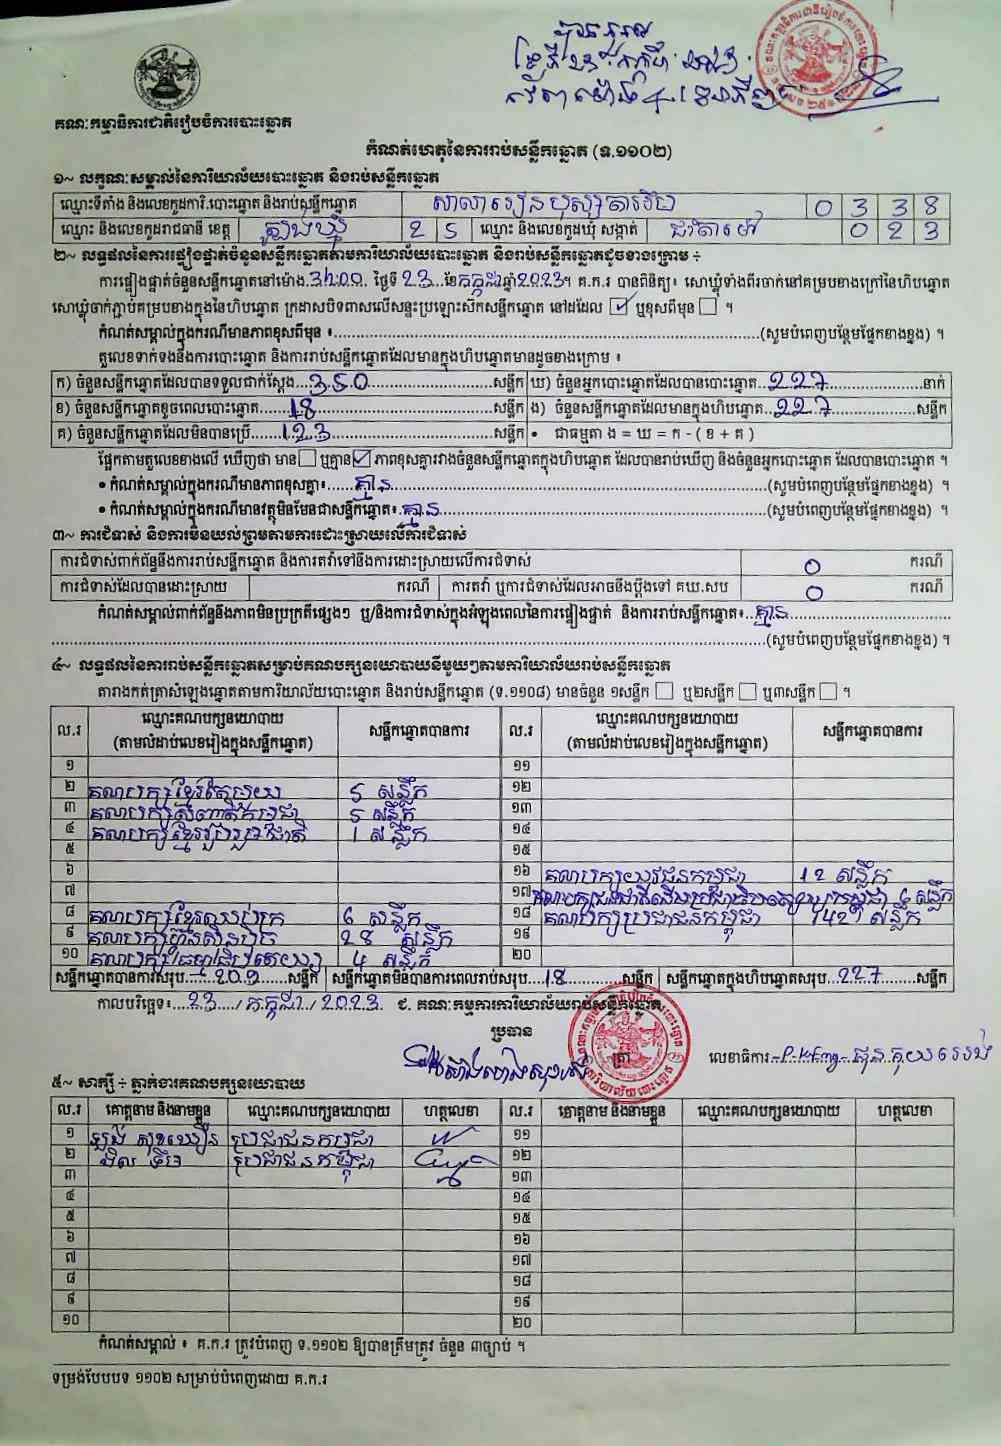 បានទទួល
គណៈកម្មាធិការជាតិរៀបចំការបោះឆ្នោត
កំណត់ហេតុនៃការរាប់សន្លឹកឆ្នោត (ទ.១១០២)
១~ លក្ខណៈសម្គាល់នៃការិយាល័យបោះឆ្នោត និងរាប់សន្លឹកឆ្នោត
ឈ្មោះទីតាំង និងលេខកូដការិ.បោះឆ្នោត និងរាប់សន្លឹកឆ្នោត សាលារៀន 0 3 3 8
ឈ្មោះ និងលេខកូដរាជធានី ខេត្ត ត្បូងឃ្មុំ 2 5 ឈ្មោះ និងលេខកូដឃុំ សង្កាត់ 0 2 3
២~ លទ្ធផលនៃការផ្ទៀងផ្ទាត់ចំនួនសន្លឹកឆ្នោតតាមការិយាល័យបោះឆ្នោត និងរាប់សន្លឹកឆ្នោតដូចខាងក្រោម ÷
ការផ្ទៀងផ្ទាត់ចំនួនសន្លឹកឆ្នោតនៅម៉ោង.3:400. ថ្ងៃទី 23 ខែកក្កដាឆ្នាំ2023។ គ.ក.រ បានពិនិត្យ៖ សោឃ្លុំទាំងពីរចាក់នៅគម្របខាងក្រៅនៃហិបឆ្នោត
សោឃ្លុំចាក់ភ្ជាប់គម្របខាងក្នុងនៃហិបឆ្នោត ក្រដាសបិទពាសលើសន្ទះប្រឡោះសឹកសន្លឹកឆ្នោត នៅដដែល ☑ ឬខុសពីមុន ☐ ។
កំណត់សម្គាល់ក្នុងករណីមានភាពខុសពីមុន ៖ (សូមបំពេញបន្ថែមផ្នែកខាងខ្នង) ។
តួលេខទាក់ទងនឹងការបោះឆ្នោត និងការរាប់សន្លឹកឆ្នោតដែលមានក្នុងហិបឆ្នោតមានដូចខាងក្រោម ៖
ក) ចំនួនសន្លឹកឆ្នោតដែលបានទទួលជាក់ស្តែង 350 សន្លឹក ឃ) ចំនួនអ្នកបោះឆ្នោតដែលបានបោះឆ្នោត 227 នាក់
ខ) ចំនួនសន្លឹកឆ្នោតខូចពេលបោះឆ្នោត 18 សន្លឹក ង) ចំនួនសន្លឹកឆ្នោតដែលមានក្នុងហិបឆ្នោត 227 សន្លឹក
គ) ចំនួនសន្លឹកឆ្នោតដែលមិនបានប្រើ 123 សន្លឹក • ជាធម្មតា ង = ឃ = ក - ( ខ + គ )
ផ្អែកតាមតួលេខខាងលើ ឃើញថា មាន ☐ ឬគ្មាន ☑ ភាពខុសគ្នារវាងចំនួនសន្លឹកឆ្នោតក្នុងហិបឆ្នោត ដែលបានរាប់ឃើញ និងចំនួនអ្នកបោះឆ្នោត ដែលបានបោះឆ្នោត ។
• កំណត់សម្គាល់ក្នុងករណីមានភាពខុសគ្នា៖ គ្មាន (សូមបំពេញបន្ថែមផ្នែកខាងខ្នង) ។
• កំណត់សម្គាល់ក្នុងករណីមានវត្ថុមិនមែនជាសន្លឹកឆ្នោត៖ គ្មាន (សូមបំពេញបន្ថែមផ្នែកខាងខ្នង) ។
៣~ ការជំទាស់ និងការមិនយល់ព្រមតាមការដោះស្រាយលើការជំទាស់
ការជំទាស់ពាក់ព័ន្ធនឹងការរាប់សន្លឹកឆ្នោត និងការតវ៉ាទៅនឹងការដោះស្រាយលើការជំទាស់ 0 ករណី
ការជំទាស់ដែលបានដោះស្រាយ ករណី ការតវ៉ា ឬការជំទាស់ដែលអាចនឹងប្តឹងទៅ គឃ.សប 0 ករណី
កំណត់សម្គាល់ពាក់ព័ន្ធនឹងភាពមិនប្រក្រតីផ្សេងៗ ឬ/និងការជំទាស់ក្នុងអំឡុងពេលនៃការផ្ទៀងផ្ទាត់ និងការរាប់សន្លឹកឆ្នោត៖ គ្មាន
(សូមបំពេញបន្ថែមផ្នែកខាងខ្នង) ។
៤~ លទ្ធផលនៃការរាប់សន្លឹកឆ្នោតសម្រាប់គណបក្សនយោបាយនីមួយៗតាមការិយាល័យរាប់សន្លឹកឆ្នោត
តារាងកត់ត្រាសំឡេងឆ្នោតតាមការិយាល័យបោះឆ្នោត និងរាប់សន្លឹកឆ្នោត (ទ.១១០៨) មានចំនួន ១សន្លឹក ☐ ឬ២សន្លឹក ☐ ឬ៣សន្លឹក ☐ ។
ល.រ ឈ្មោះគណបក្សនយោបាយ (តាមលំដាប់លេខរៀងក្នុងសន្លឹកឆ្នោត) សន្លឹកឆ្នោតបានការ ល.រ ឈ្មោះគណបក្សនយោបាយ (តាមលំដាប់លេខរៀងក្នុងសន្លឹកឆ្នោត) សន្លឹកឆ្នោតបានការ
១ ១១
២ គណបក្សខ្មែរតែមួយ 5 សន្លឹក ១២
៣ គណបក្សសញ្ជាតិកម្ពុជា 5 សន្លឹក ១៣
៤ គណបក្សខ្មែររួបរួមជាតិ 1 សន្លឹក ១៤
៥ ១៥
៦ ១៦ គណបក្សយុវជនកម្ពុជា 12 សន្លឹក
៧ ១៧ 6 សន្លឹក
៨ គណបក្សខ្មែរឈប់ក្រ 6 សន្លឹក ១៨ គណបក្សប្រជាជនកម្ពុជា 142 សន្លឹក
៩ គណបក្សហ្វ៊ុនស៊ិនប៉ិច 28 សន្លឹក ១៩
១០ គណបក្សធម្មាធិបតេយ្យ 4 សន្លឹក ២០
សន្លឹកឆ្នោតបានការសរុប 209 សន្លឹក សន្លឹកឆ្នោតមិនបានការពេលរាប់សរុប 18 សន្លឹក សន្លឹកឆ្នោតក្នុងហិបឆ្នោតសរុប 227 សន្លឹក
កាលបរិច្ឆេទ៖ 23 / កក្កដា / 2023 ជ. គណៈកម្មការការិយាល័យរាប់សន្លឹកឆ្នោត
ប្រធាន
ត្រា លេខាធិការ
៥~ សាក្សី ÷ ភ្នាក់ងារគណបក្សនយោបាយ
ល.រ គោត្តនាម និងនាមខ្លួន ឈ្មោះគណបក្សនយោបាយ ហត្ថលេខា ល.រ គោត្តនាម និងនាមខ្លួន ឈ្មោះគណបក្សនយោបាយ ហត្ថលេខា
១ ប្រជាជនកម្ពុជា ១១
២ ប្រជាជនកម្ពុជា ១២
៣ ១៣
៤ ១៤
៥ ១៥
៦ ១៦
៧ ១៧
៨ ១៨
៩ ១៩
១០ ២០
កំណត់សម្គាល់ ៖ គ.ក.រ ត្រូវបំពេញ ទ.១១០២ ឱ្យបានត្រឹមត្រូវ ចំនួន ៣ច្បាប់ ។
ទម្រង់បែបបទ ១១០២ សម្រាប់បំពេញដោយ គ.ក.រ